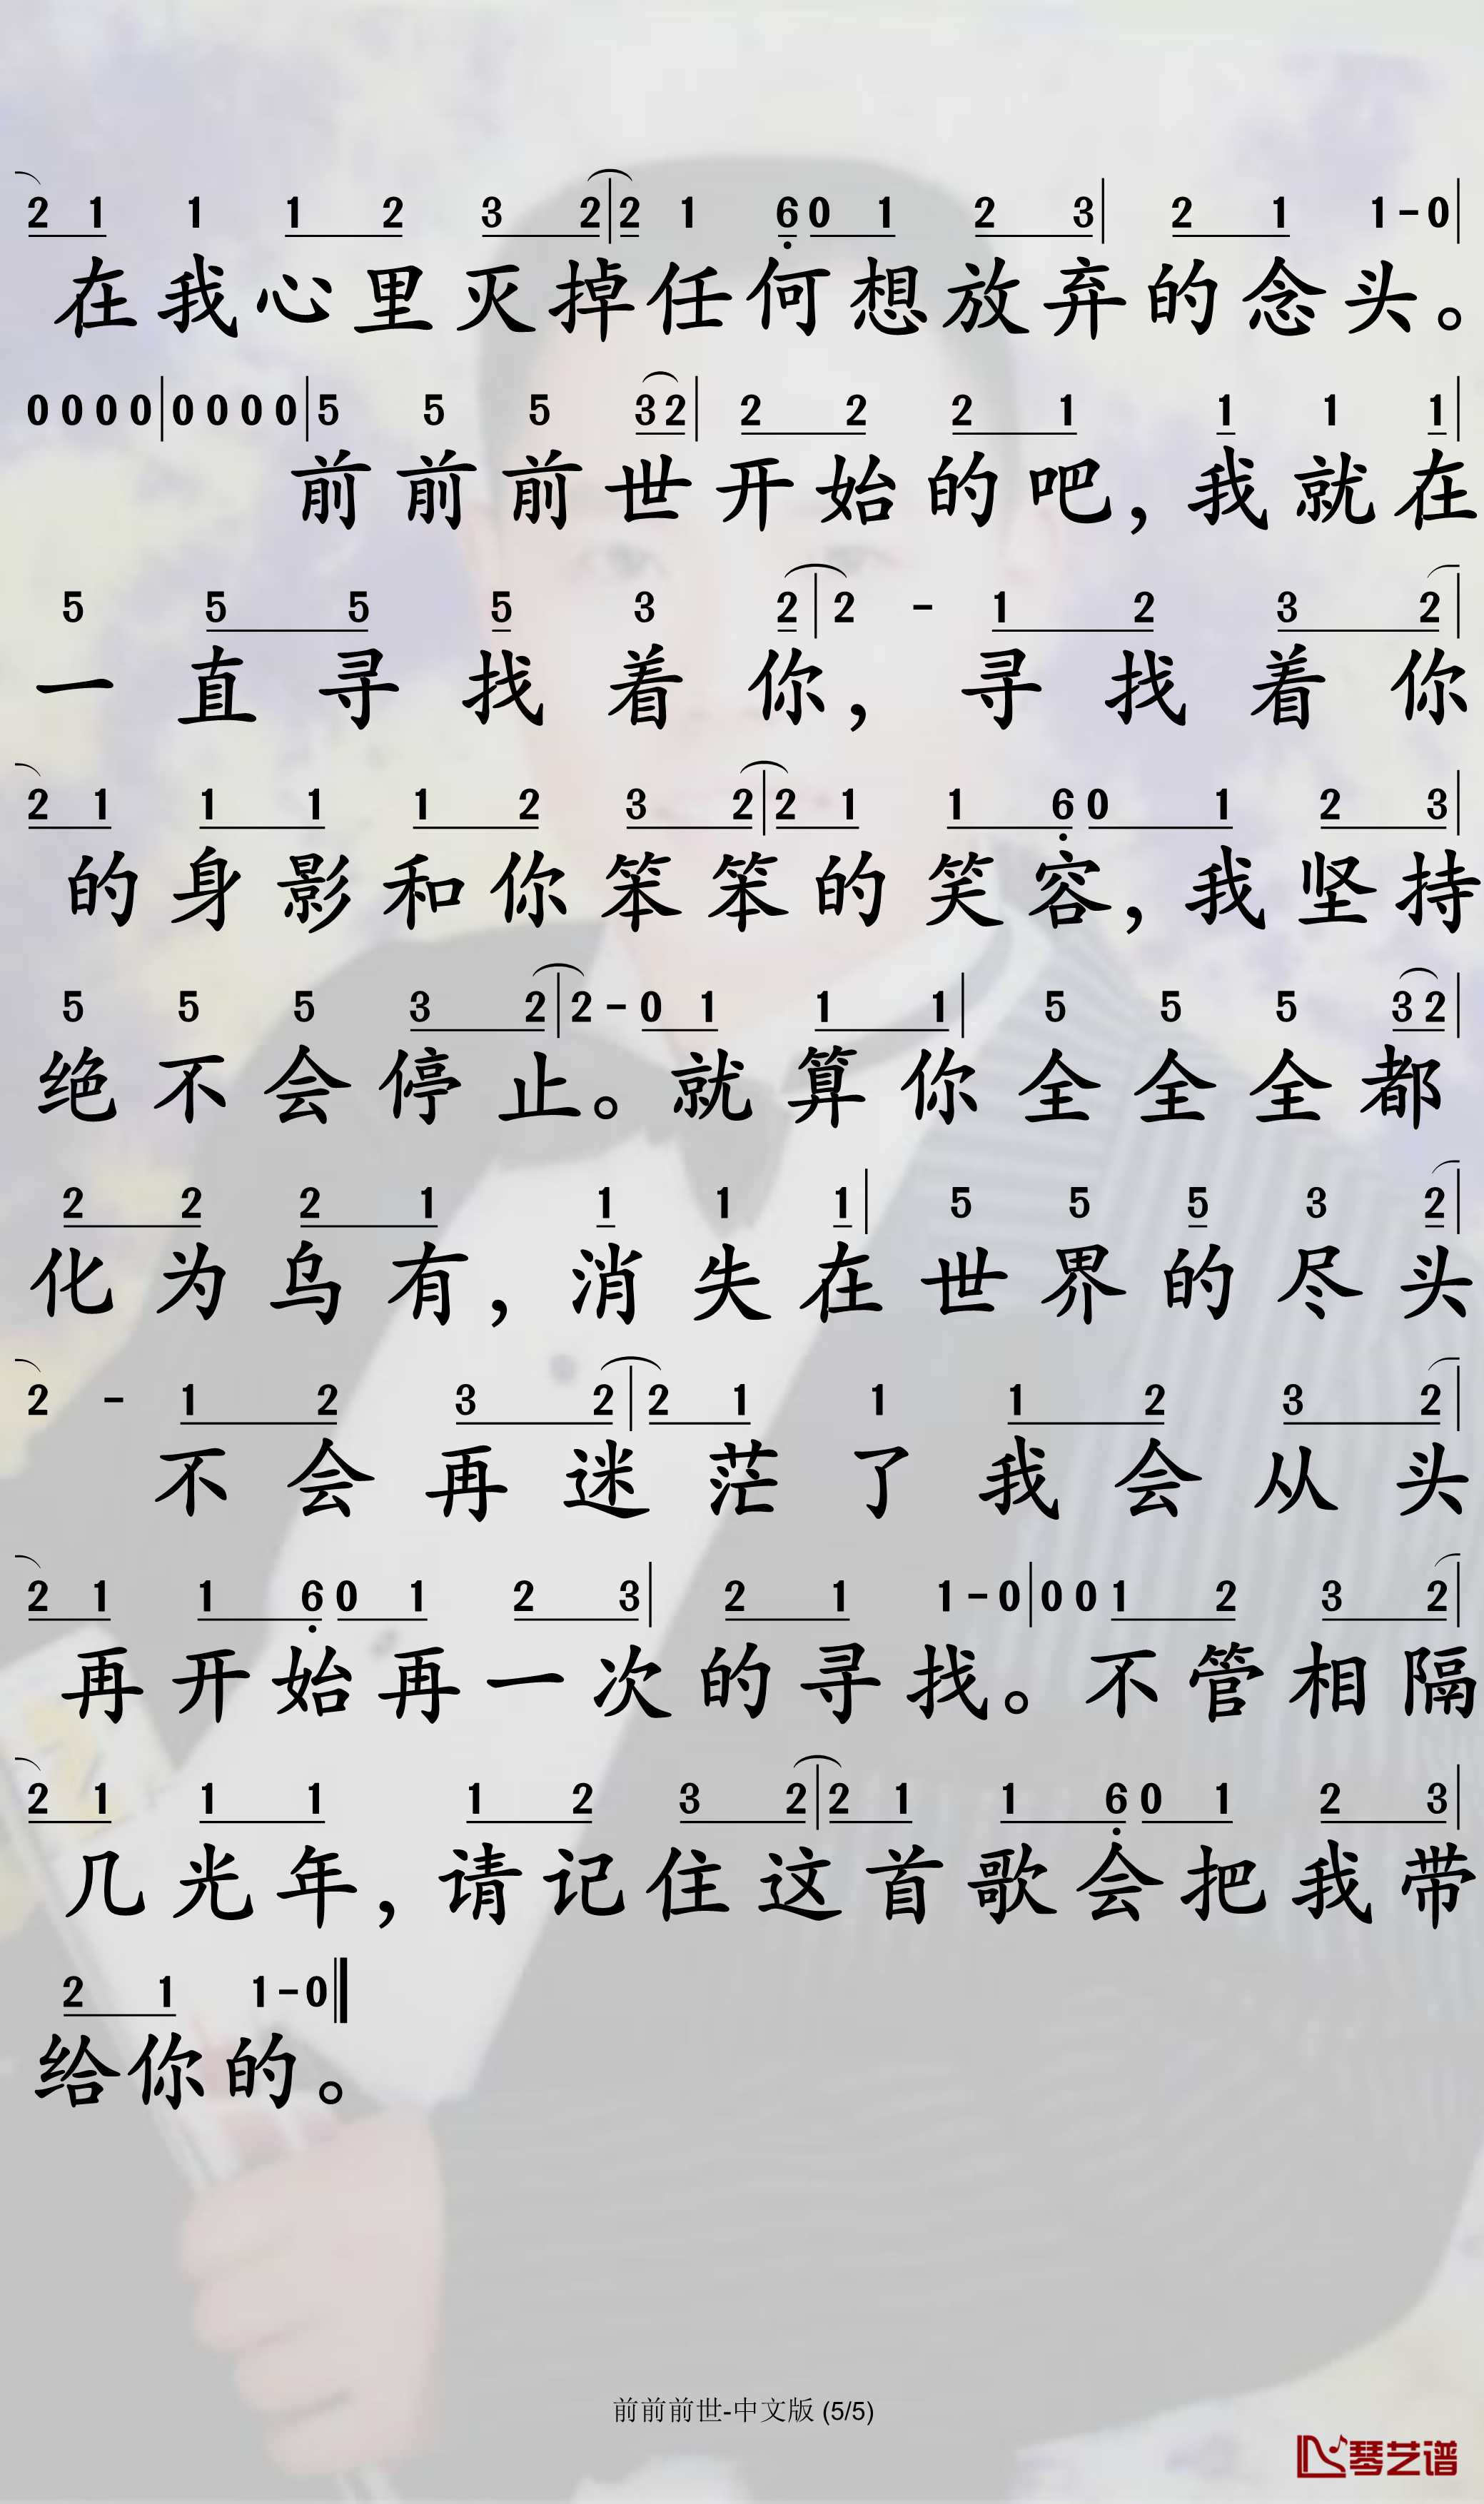 2 1 1 1 2 3 2|2 1 6 0 1 2 3| 2 1 1-0|
在我心里灭掉任何想放弃的念头。
0 0 0 0|0 0 0 0|5 5 5 3 2|2 2 2 1 1 1 1|
前前前世开始的吧，我就在
5 5 5 5 3 2|2 - 1 2 3 2|
一直寻找着你，寻找着你
2 1 1 1 1 2 3 2|2 1 1 6 0 1 2 3|
的身影和你笨笨的笑容，我坚持
5 5 5 3 2|2-0 1 1 1|5 5 5 3 2|
绝不会停止。就算你全全全都
2 2 2 1 1 1 1|5 5 5 3 2|
化为乌有，消失在世界的尽头
2 - 1 2 3 2|2 1 1 1 2 3 2|
不会再迷茫了我会从头
2 1 1 6 0 1 2 3|2 1 1-0|0 0 1 2 3 2|
再开始再一次的寻找。不管相隔
2 1 1 1 1 2 3 2|2 1 1 6 0 1 2 3|
几光年，请记住这首歌会把我带
2 1 1-0‖
给你的。
前前前世-中文版 (5/5)
琴艺谱